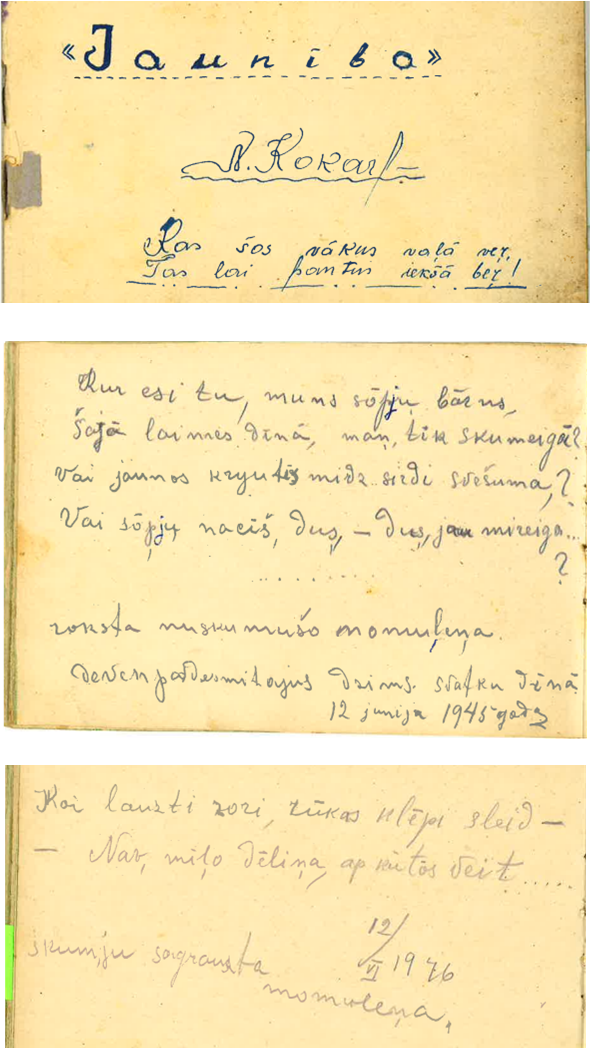 «Jaunība»
A. Kokars
Kas šos vākus vaļā ver,
Tas lai pantus iekšā ber!
Kur esi tu, muns sōpju bārns,
Šajā laimes dīnā, maņ, tik skumeigā?
Vai jaunos kryutīs midz sirdi svešuma,?
Vai sōpju naciš, duş, – duş, jau mireiga...
?
..........
roksta nuskumušo momuļeņa.
devenpadesmitajus dzims. svātku dīnā
12 junija 1945 godā
Koi lauzti zori, rūkas klēpī sleid –
– Nav, miļo dēliņa, ap kūtōs veit.....
skumju sagrauzta
12/VI 1946
momuleņa.